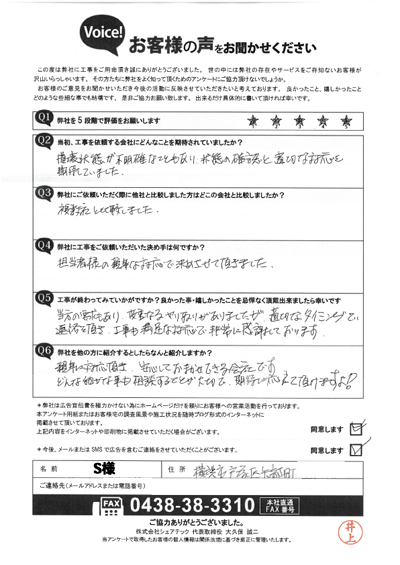 Voice!
お客様の声をお聞かせください
この度は弊社に工事をご用命頂き誠にありがとうございました。世の中には弊社の存在やサービスをご存知ないお客様が
沢山いらっしゃいます。その方たちに弊社をよく知って頂くためのアンケートにご協力頂けないでしょうか。
お客様のご意見をお聞かせいただき今後の活動に反映させていただきたいと考えております。良かったこと、嬉しかったこと
どのような些細な事でも結構です。是非ご協力お願い致します。出来るだけ具体的に書いて頂ければ幸いです。
Q1 弊社を5段階で評価をお願いします ★ ★ ★ ★ ★
Q2 当初、工事を依頼する会社にどんなことを期待されていましたか?
損傷状態が不明確なこともあり、状態の確認と適切な対応を
期待していました。
Q3 弊社にご依頼いただく際に他社と比較しました方はどこの会社と比較しましたか?
複数社と比較しました。
Q4 弊社に工事をご依頼いただいた決め手は何ですか?
担当者様の親身な対応で決めさせて頂きました。
Q5 工事が終わってみていかがですか?良かった事・嬉しかったことを忌憚なく頂戴出来ましたら幸いです
当方の都合もあり、なやりとりがありましたが適切なタイミングで
連絡を頂き、工事も満足な対応で非常に感謝しております。
Q6 弊社を他の方に紹介するとしたらなんと紹介しますか?
親身に対応頂き、安心してお任せできる会社です
どんな些細な事も相談することが大切で、期待に応えて頂けますよ!!
*弊社は広告宣伝費を極力かけない為にホームページだけを頼りにお客様への営業活動を行っております。
本アンケート用紙またはお客様宅の調査風景や施工状況を随時ブログ形式のインターネットに
掲載させて頂いております。
上記内容をインターネットや印刷物に掲載させていただく場合がございます。
同意します ☑
*今後、メールまたはSMSで広告を含むご連絡をさせていただくことがございます。
同意します ☑
名前 S様 住所 横浜市戸塚区
ご連絡先(メールアドレスまたは電話番号)
FAX 0438-38-3310 本社直通FAX番号
ご協力ありがとうございました。
株式会社シェアテック 代表取締役 大久保 誠二
当アンケートで取得したお客様の個人情報は関係法規に基づき厳正に管理いたします。
井上